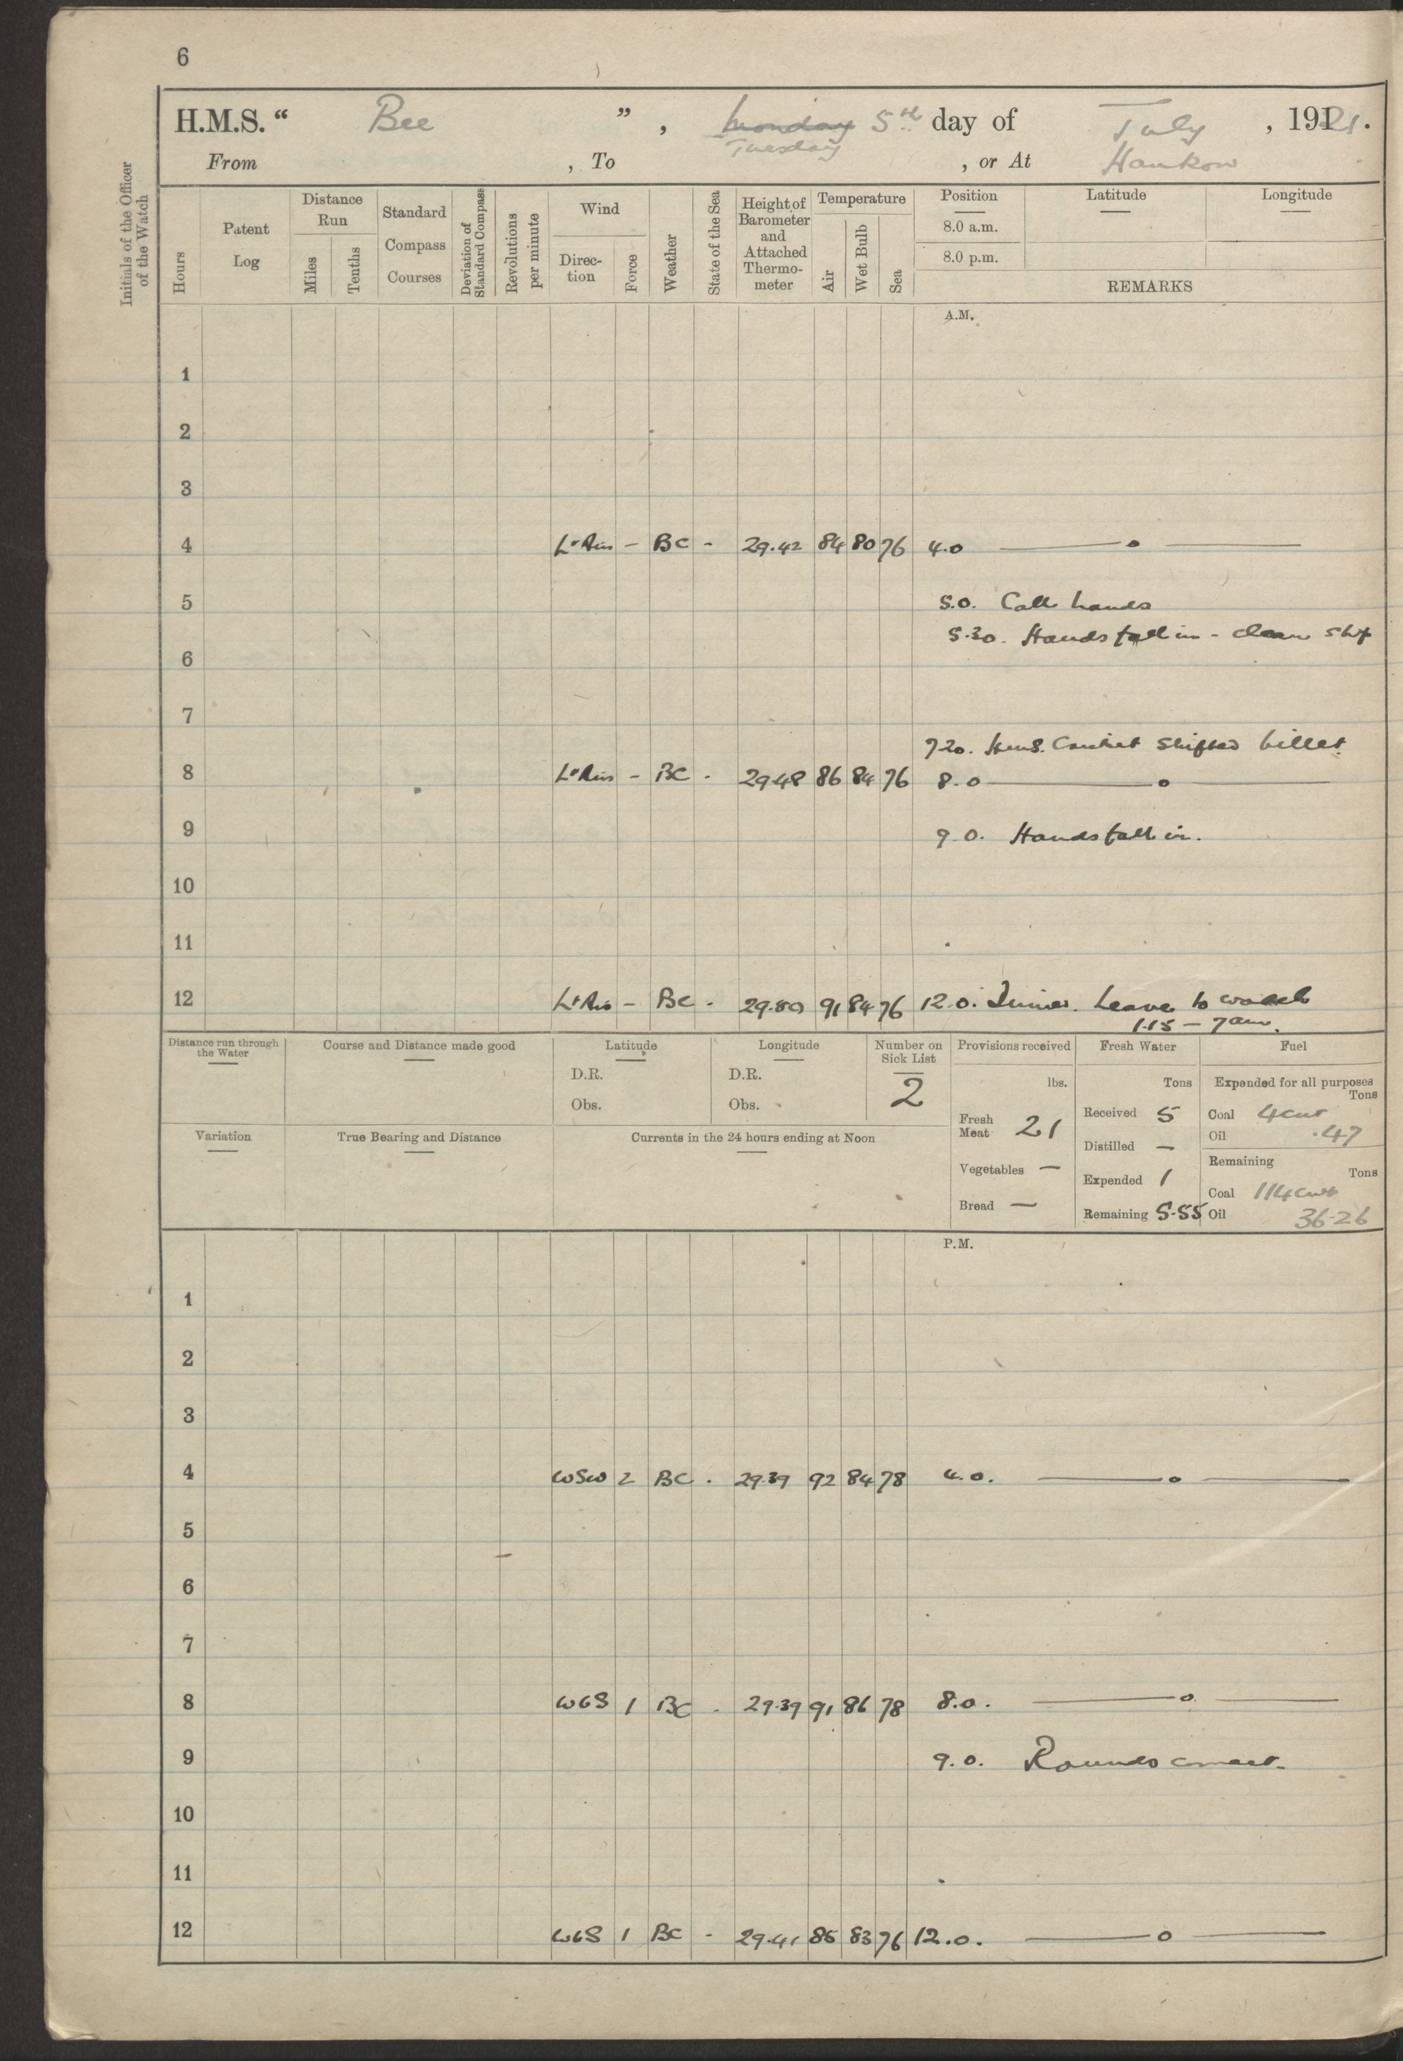 6
H.M.S. “ Bee ” , Monday 5th day of July , 1921.
Tuesday
From , To , or At Hankow
Initials of the Officer of the Watch
Hours
Patent Log
Distance Run
Miles
Tenths
Standard Compass Courses
Deviation of Standard Compass
Revolutions per minute
Wind
Direction
Force
Weather
State of the Sea
Height of Barometer and Attached Thermometer
Temperature
Air
Wet Bulb
Sea
Position
8.0 a.m.
8.0 p.m.
Latitude
Longitude
REMARKS
A.M.
1
2
3
4 Lt Airs - BC - 29.42 84 80 76 4.0
5 5.0. Call hands
5.30. Hands fall in - clean ship
6
7
7.20. H.M.S. Cricket shifted billet
8 Lt Airs - BC - 29.48 86 84 76 8.0
9 9.0. Hands fall in.
10
11
12 Lt Airs - BC - 91 84 76 12.0. Dinner. Leave to watch
1.15 - 7am.
Distance run through the Water
Course and Distance made good
Latitude
D.R.
Obs.
Longitude
D.R.
Obs.
Number on Sick List
2
Variation
True Bearing and Distance
Currents in the 24 hours ending at Noon
Provisions received
lbs.
Fresh Meat 21
Vegetables —
Bread —
Fresh Water
Tons
Received 5
Distilled —
Expended 1
Remaining 5.55
Fuel
Expended for all purposes
Tons
Coal 4cwt
Oil .47
Remaining
Tons
Coal 114cwt
Oil 36.26
P.M.
1
2
3
4 WSW 2 BC - 29.39 92 84 78 4.0.
5
6
7
8 WbS 1 BC - 29.39 91 86 78 8.0.
9 9.0. Rounds correct.
10
11
12 WbS 1 BC - 29.41 85 83 76 12.0.